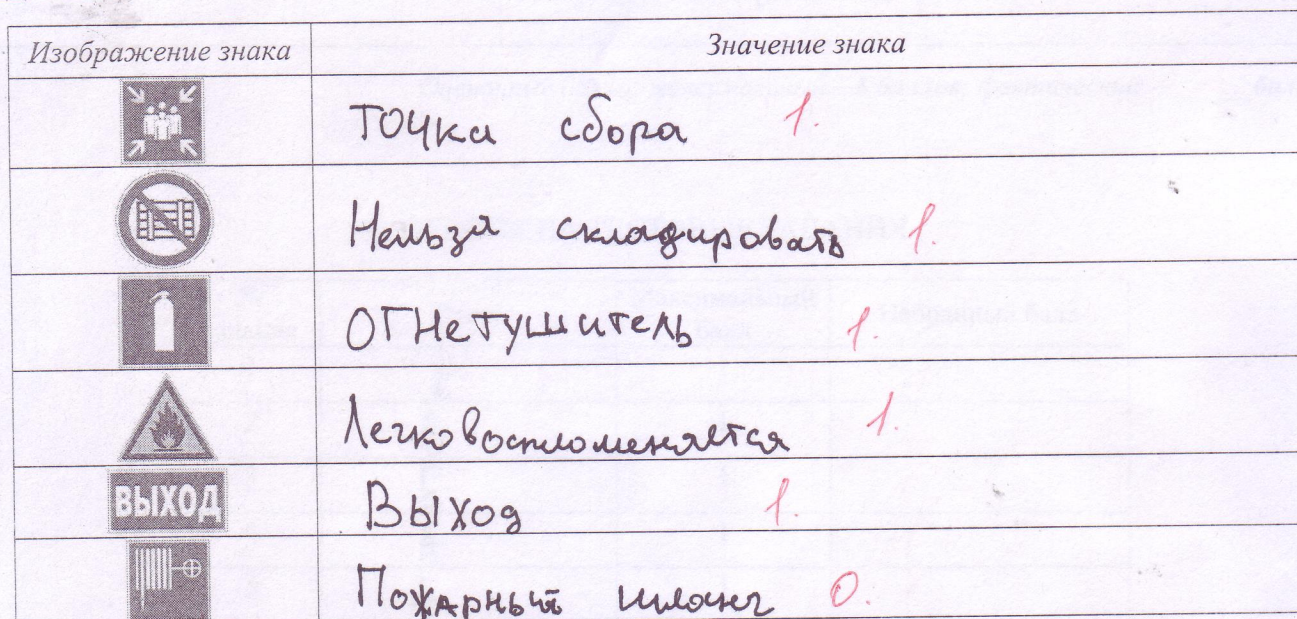 Изображение знака Значение знака
точка сбора 1.
Нельзя складировать 1.
Огнетушитель 1.
Легковоспломеняется 1.
ВЫХОД Выход 1.
Пожарный шланг 0.